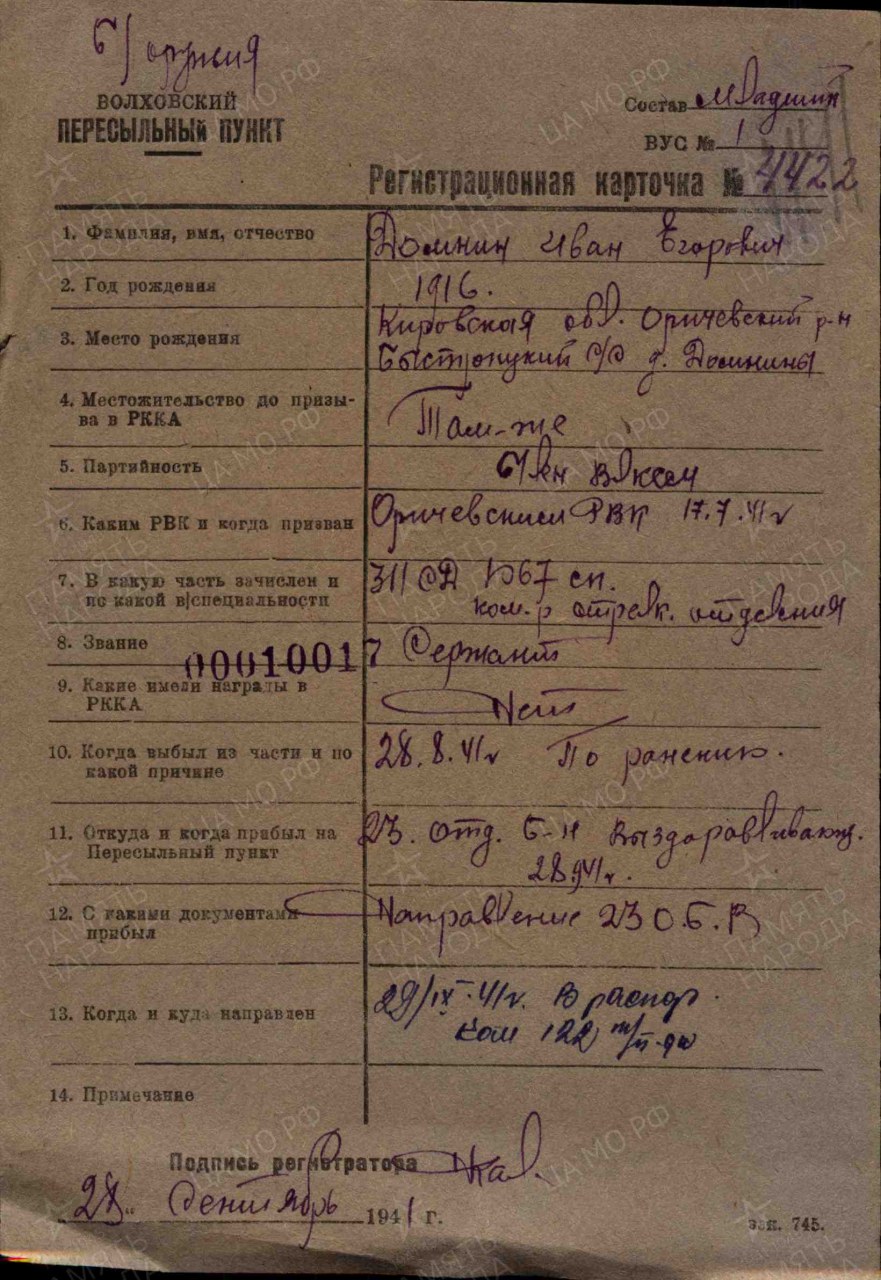 б/оружия
ВОЛХОВСКИЙ
ПЕРЕСЫЛЬНЫЙ ПУНКТ
Состав Младший
ВУС № 1
Регистрационная карточка № 4422
1. Фамилия, имя, отчество Домнин Иван Егорович
2. Год рождения 1916.
3. Место рождения Кировская обл. Оричевский р-н
Быстрицкий с/с д. Домнины
4. Местожительство до призы-
ва в РККА Там-же
5. Партийность Член ВЛКСМ
6. Каким РВК и когда призван Оричевским РВК 17.7.41г
7. В какую часть зачислен и
по какой в/специальности 311 СД 1067 сп.
ком-р стрелк. отделения
8. Звание Сержант
00010017
9. Какие имели награды в
РККА Нет
10. Когда выбыл из части и по
какой причине 28.8.41г По ранению.
11. Откуда и когда прибыл на
Пересыльный пункт 23. отд. б-н выздоравливающ.
28.9.41г.
12. С какими документами
прибыл Направление 23 О.Б.В
13. Когда и куда направлен 29/IX-41г. В распор.
ком 122
14. Примечание
Подпись регистратора
28 " Сентябрь 1941 г.
зак. 745.
ПАМЯТЬ НАРОДА
ЦА МО.РФ